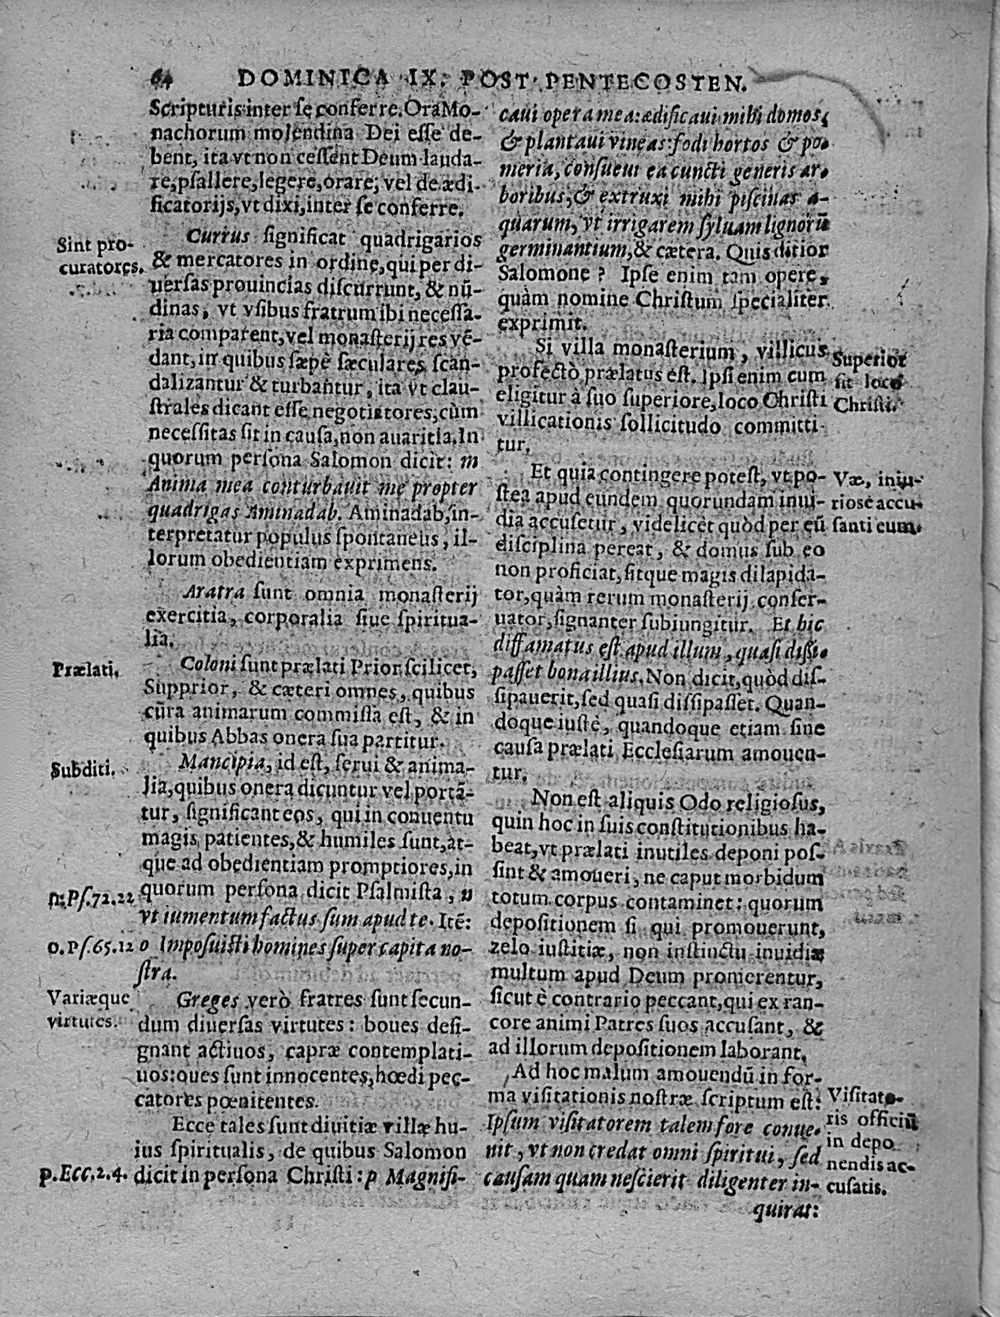 64 DOMINICA IX. POST PENTECOSTEN.
Scripturis inter se conferre. Ora Mo-
nachorum molendina Dei esse de-
bent, ita vt non cessent Deum lauda-
re, psallere, legere, orare; vel de ædi-
ficatorijs, vt dixi, inter se conferre.
Currus significat quadrigarios
& mercatores in ordine, qui per di-
uersas prouincias discurrunt, & nũ-
dinas, vt vsibus fratrum ibi necessa-
ria comparent, vel monasterij res vẽ-
dant, in quibus sæpè sæculares scan-
dalizantur & turbantur, ita vt clau-
strales dicant esse negotiatores, cùm
necessitas sit in causa, non auaritia. In
quorum persona Salomon dicit: m
Anima mea conturbauit me propter
quadrigas Aminadab. Aminadab, in-
terpretatur populus spontaneus, il-
lorum obedientiam exprimens.
Aratra sunt omnia monasterij
exercitia, corporalia siue spiritua-
lia.
Coloni sunt prælati Prior scilicet,
Supprior, & cæteri omnes, quibus
cũra animarum commissa est, & in
quibus Abbas onera sua partitur.
Mancipia, id est, serui & anima-
lia, quibus onera dicuntur vel portã-
tur, significant eos, qui in conuentu
magis patientes, & humiles sunt, at-
que ad obedientiam promptiores, in
quorum persona dicit Psalmista, n
vt iumentum factus sum apud te. Itẽ:
o Imposuisti homines super capita no-
stra.
Greges verò fratres sunt secun-
dum diuersas virtutes: boues desi-
gnant actiuos, capræ contemplati-
uos: oues sunt innocentes, hœdi pec-
catores pœnitentes.
Ecce tales sunt diuitiæ villæ hu-
ius spiritualis, de quibus Salomon
dicit in persona Christi: p Magnifi-
Sint pro-
curatores.
Prælati.
Subditi.
n. Ps. 72. 22
o. Ps. 65. 12
Variæque
virtutes.
p. Ecc. 2. 4.
caui opera mea: ædificaui mihi domos,
& plantaui vineas: fodi hortos & po-
meria, conseui ea cuncti generis ar-
boribus, & extruxi mihi piscinas a-
quarum, vt irrigarem syluam lignorũ
germinantium, & cætera. Quis ditior
Salomone? Ipse enim tam opere,
quàm nomine Christum specialiter
exprimit.
Si villa monasterium, villicus
profectò prælatus est. Ipsi enim cum
eligitur à suo superiore, loco Christi
villicationis sollicitudo committi-
tur.
Et quia contingere potest, vt po-
stea apud eundem quorundam inui-
dia accusetur, videlicet quòd per eũ
disciplina pereat, & domus sub eo
non proficiat, sitque magis dilapida-
tor, quàm rerum monasterij conser-
uator, signanter subiungitur. Et hic
diffamatus est apud illum, quasi dissi-
passet bona illius. Non dicit, quòd dis-
sipauerit, sed quasi dissipasset. Quan-
doque iustè, quandoque etiam sine
causa prælati Ecclesiarum amouen-
tur.
Non est aliquis Odo religiosus,
quin hoc in suis constitutionibus ha-
beat, vt prælati inutiles deponi pos-
sint & amoueri, ne caput morbidum
totum corpus contaminet: quorum
depositionem si qui promouerunt,
zelo iustitiæ, non instinctu inuidiæ
multum apud Deum promerentur,
sicut è contrario peccant, qui ex ran-
core animi Patres suos accusant, &
ad illorum depositionem laborant.
Ad hoc malum amouendũ in for-
ma visitationis nostræ scriptum est:
Ipsum visitatorem talem fore conue-
nit, vt non credat omni spiritui, sed
causam quam nescierit diligenter in-
quirat:
Superior
sit loco
Christi.
Væ, iniu-
riosè accu-
santi eum.
Visitato-
ris officiũ
in depo
nendis ac-
cusatis.